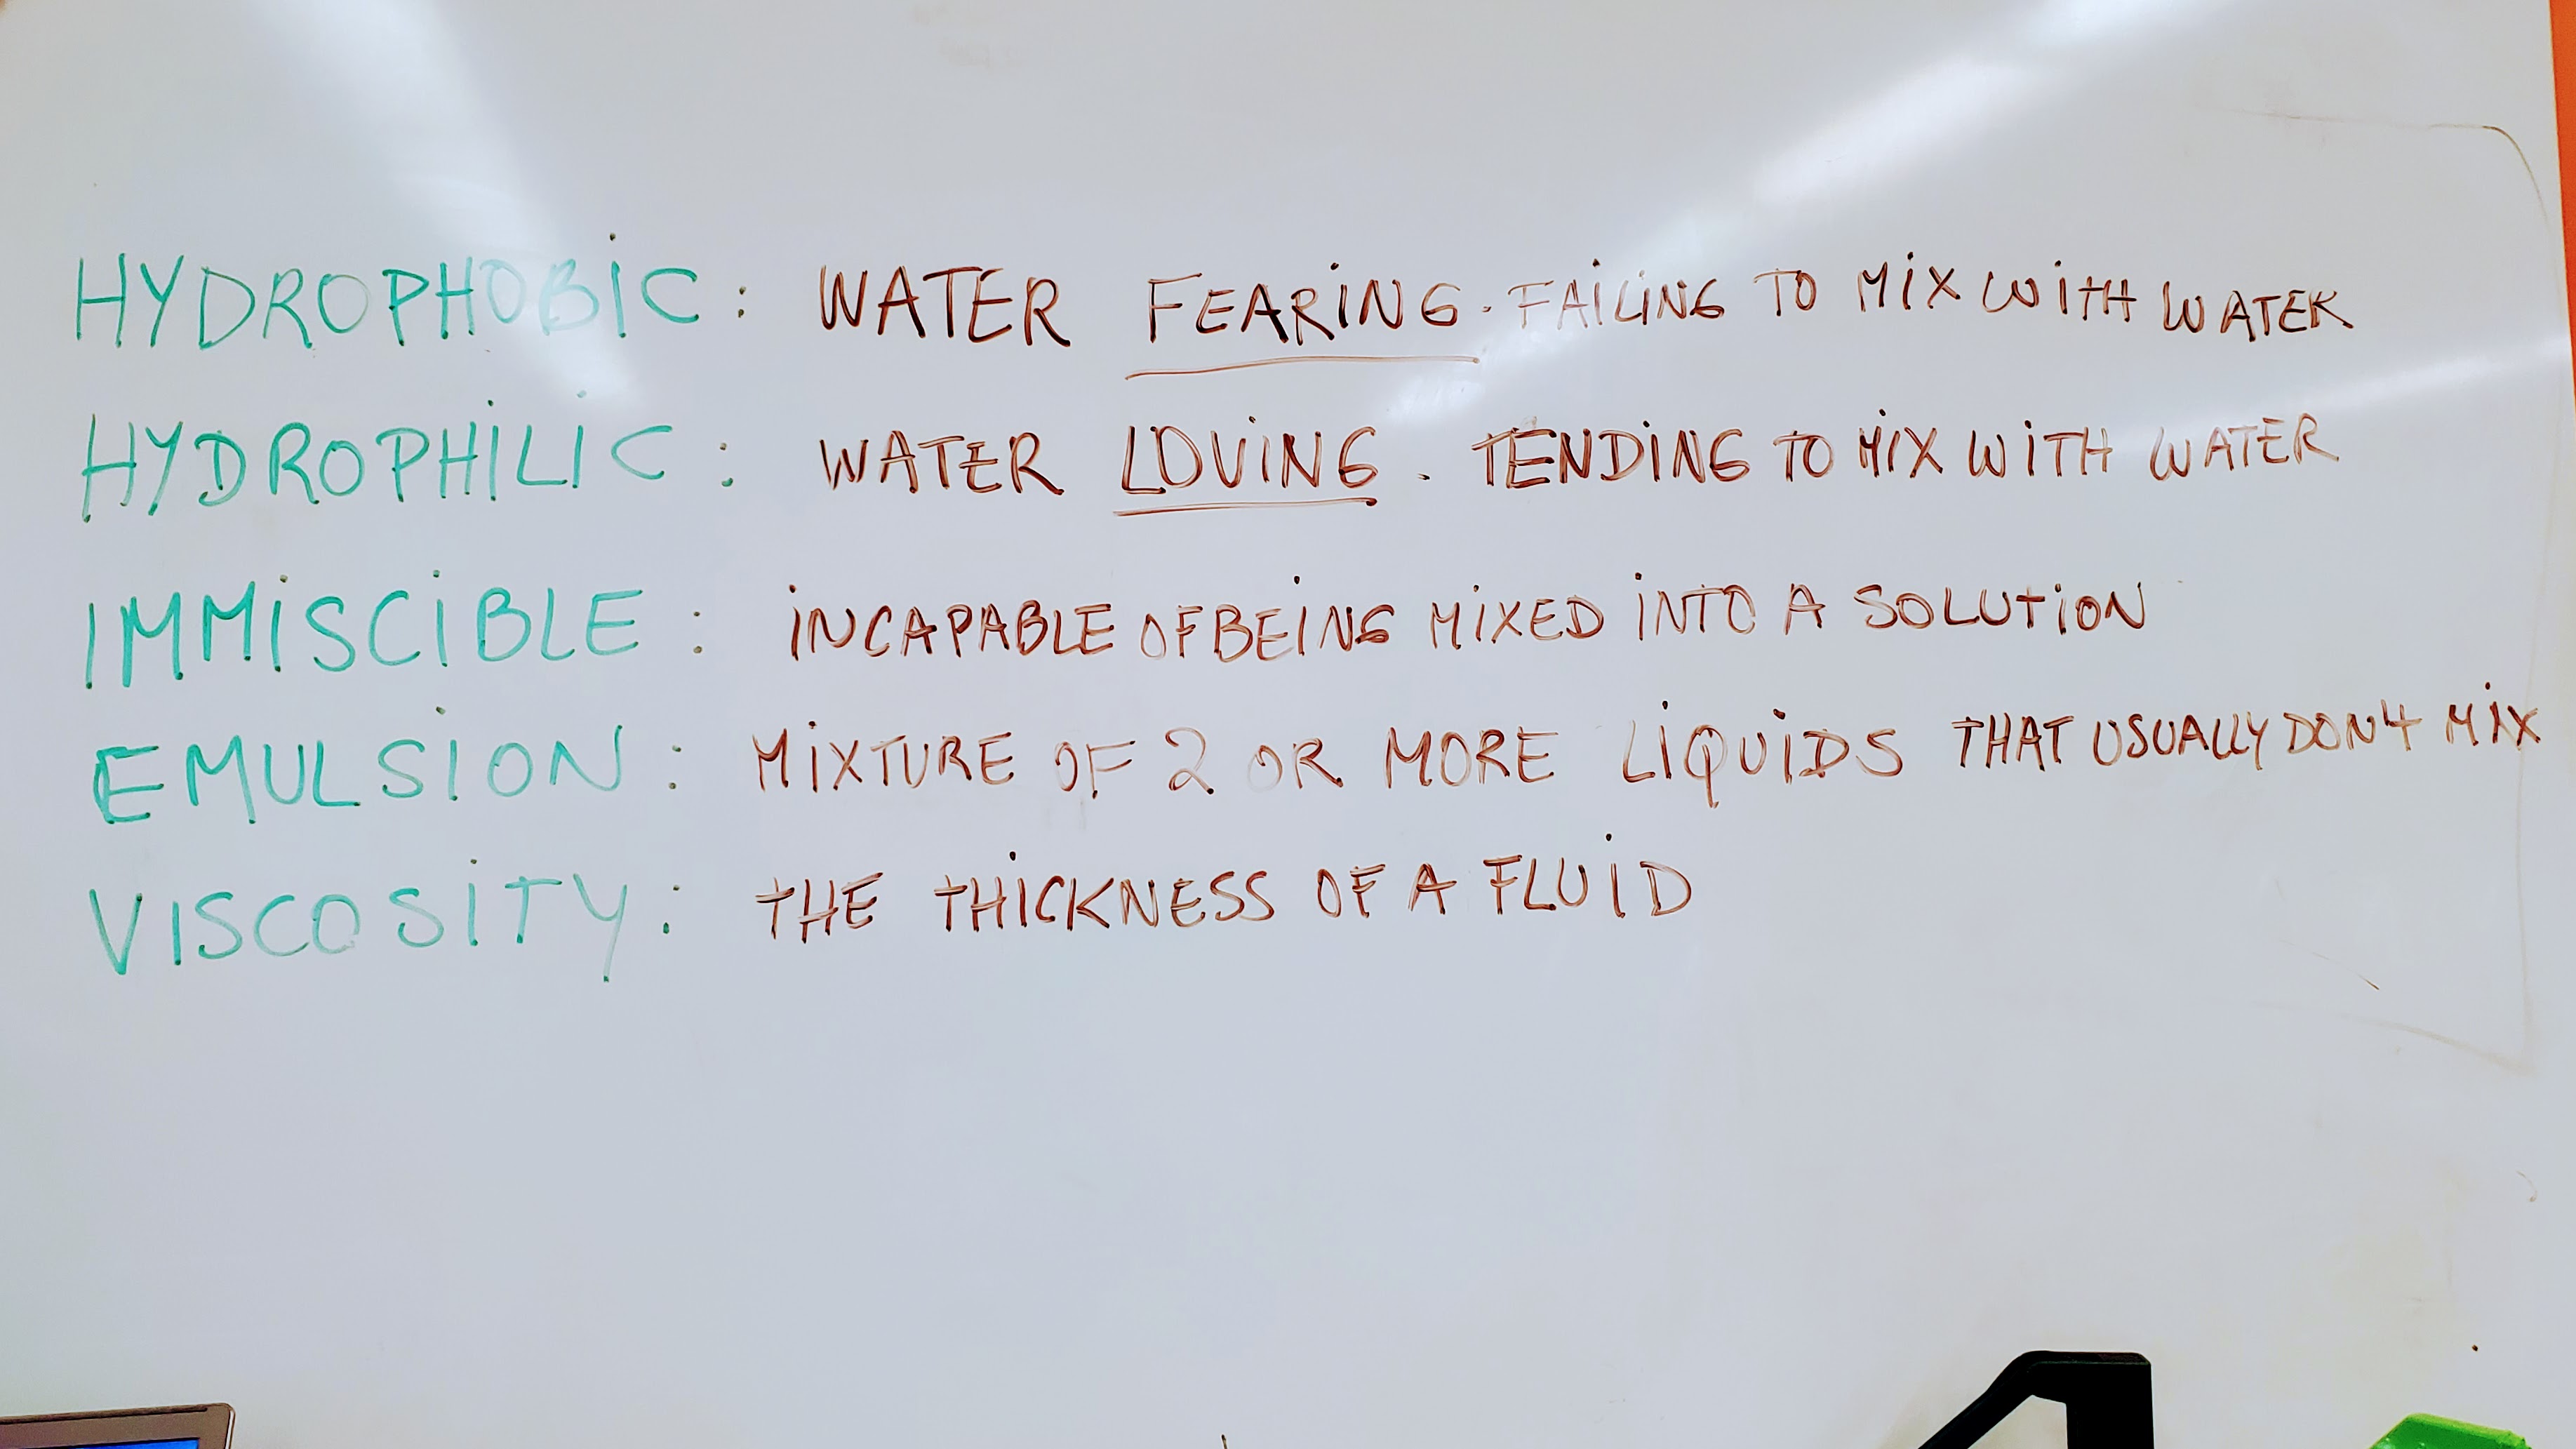 HYDROPHOBIC: WATER FEARING. FAILING TO MIX WITH WATER
HYDROPHILIC: WATER LOVING. TENDING TO MIX WITH WATER
IMMISCIBLE: INCAPABLE OF BEING MIXED INTO A SOLUTION
EMULSION: MIXTURE OF 2 OR MORE LIQUIDS THAT USUALLY DON't MIX
VISCOSITY: THE THICKNESS OF A FLUID